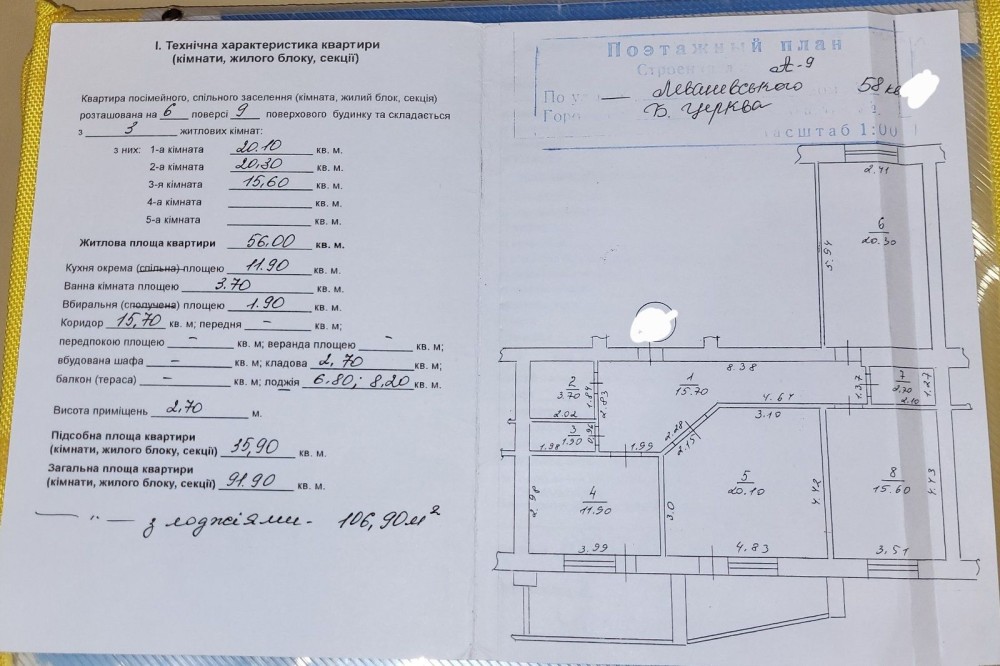 I. Технічна характеристика квартири
(кімнати, жилого блоку, секції)
Квартира посімейного, спільного заселення (кімната, жилий блок, секція)
розташована на 6 поверсі 9 поверхового будинку та складається
з 3 житлових кімнат:
з них: 1-а кімната 20.10 кв. м.
2-а кімната 20,30 кв. м.
3-я кімната 15,60 кв. м.
4-а кімната кв. м.
5-а кімната кв. м.
Житлова площа квартири 56,00 кв. м.
Кухня окрема (спільна) площею 11.90 кв. м.
Ванна кімната площею 3.70 кв. м.
Вбиральня (сполучена) площею 1.90 кв. м.
Коридор 15,70 кв. м; передня – кв. м;
передпокою площею – кв. м; веранда площею – кв. м;
вбудована шафа – кв. м; кладова 2,70 кв. м;
балкон (тераса) – кв. м; лоджія 6.80; 8,20 кв. м.
Висота приміщень 2,70 м.
Підсобна площа квартири
(кімнати, жилого блоку, секції) 35,90 кв. м.
Загальна площа квартири
(кімнати, жилого блоку, секції) 91.90 кв. м.
— " — з лоджіями - 106,90м²
Поэтажный план
А-9
По Леваневського 58 кв
Горо Б. Церква
масштаб 1:00
2.41
6
20.30
5.94
8.38
1
15.70
4.64
1.37
7
2.70
2.10
1.27
2
3.70
1.84
2.83
2.02
3
1.90
0.96
1.98
1.99
2.28
2.15
3.10
4
11.90
2.98
3.99
5
20.10
3.0
4.42
4.83
8
15.60
4.43
3.51